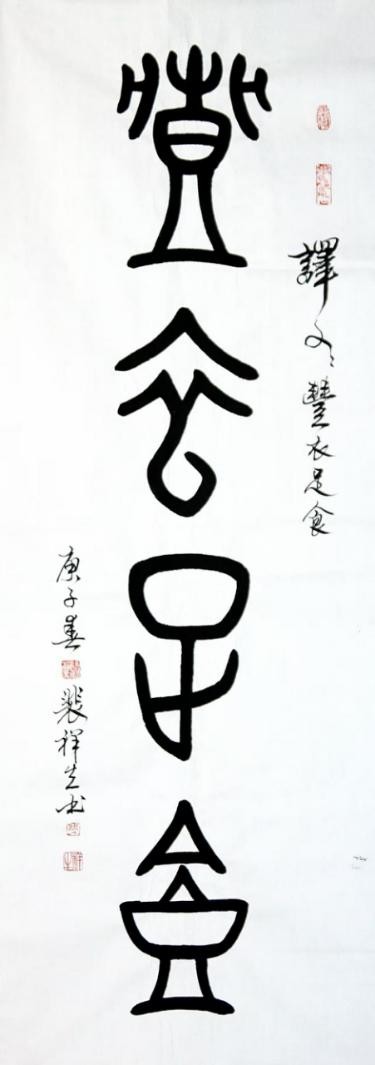 譯文：豐衣足食
豐衣足食
庚子春
裴祥生书